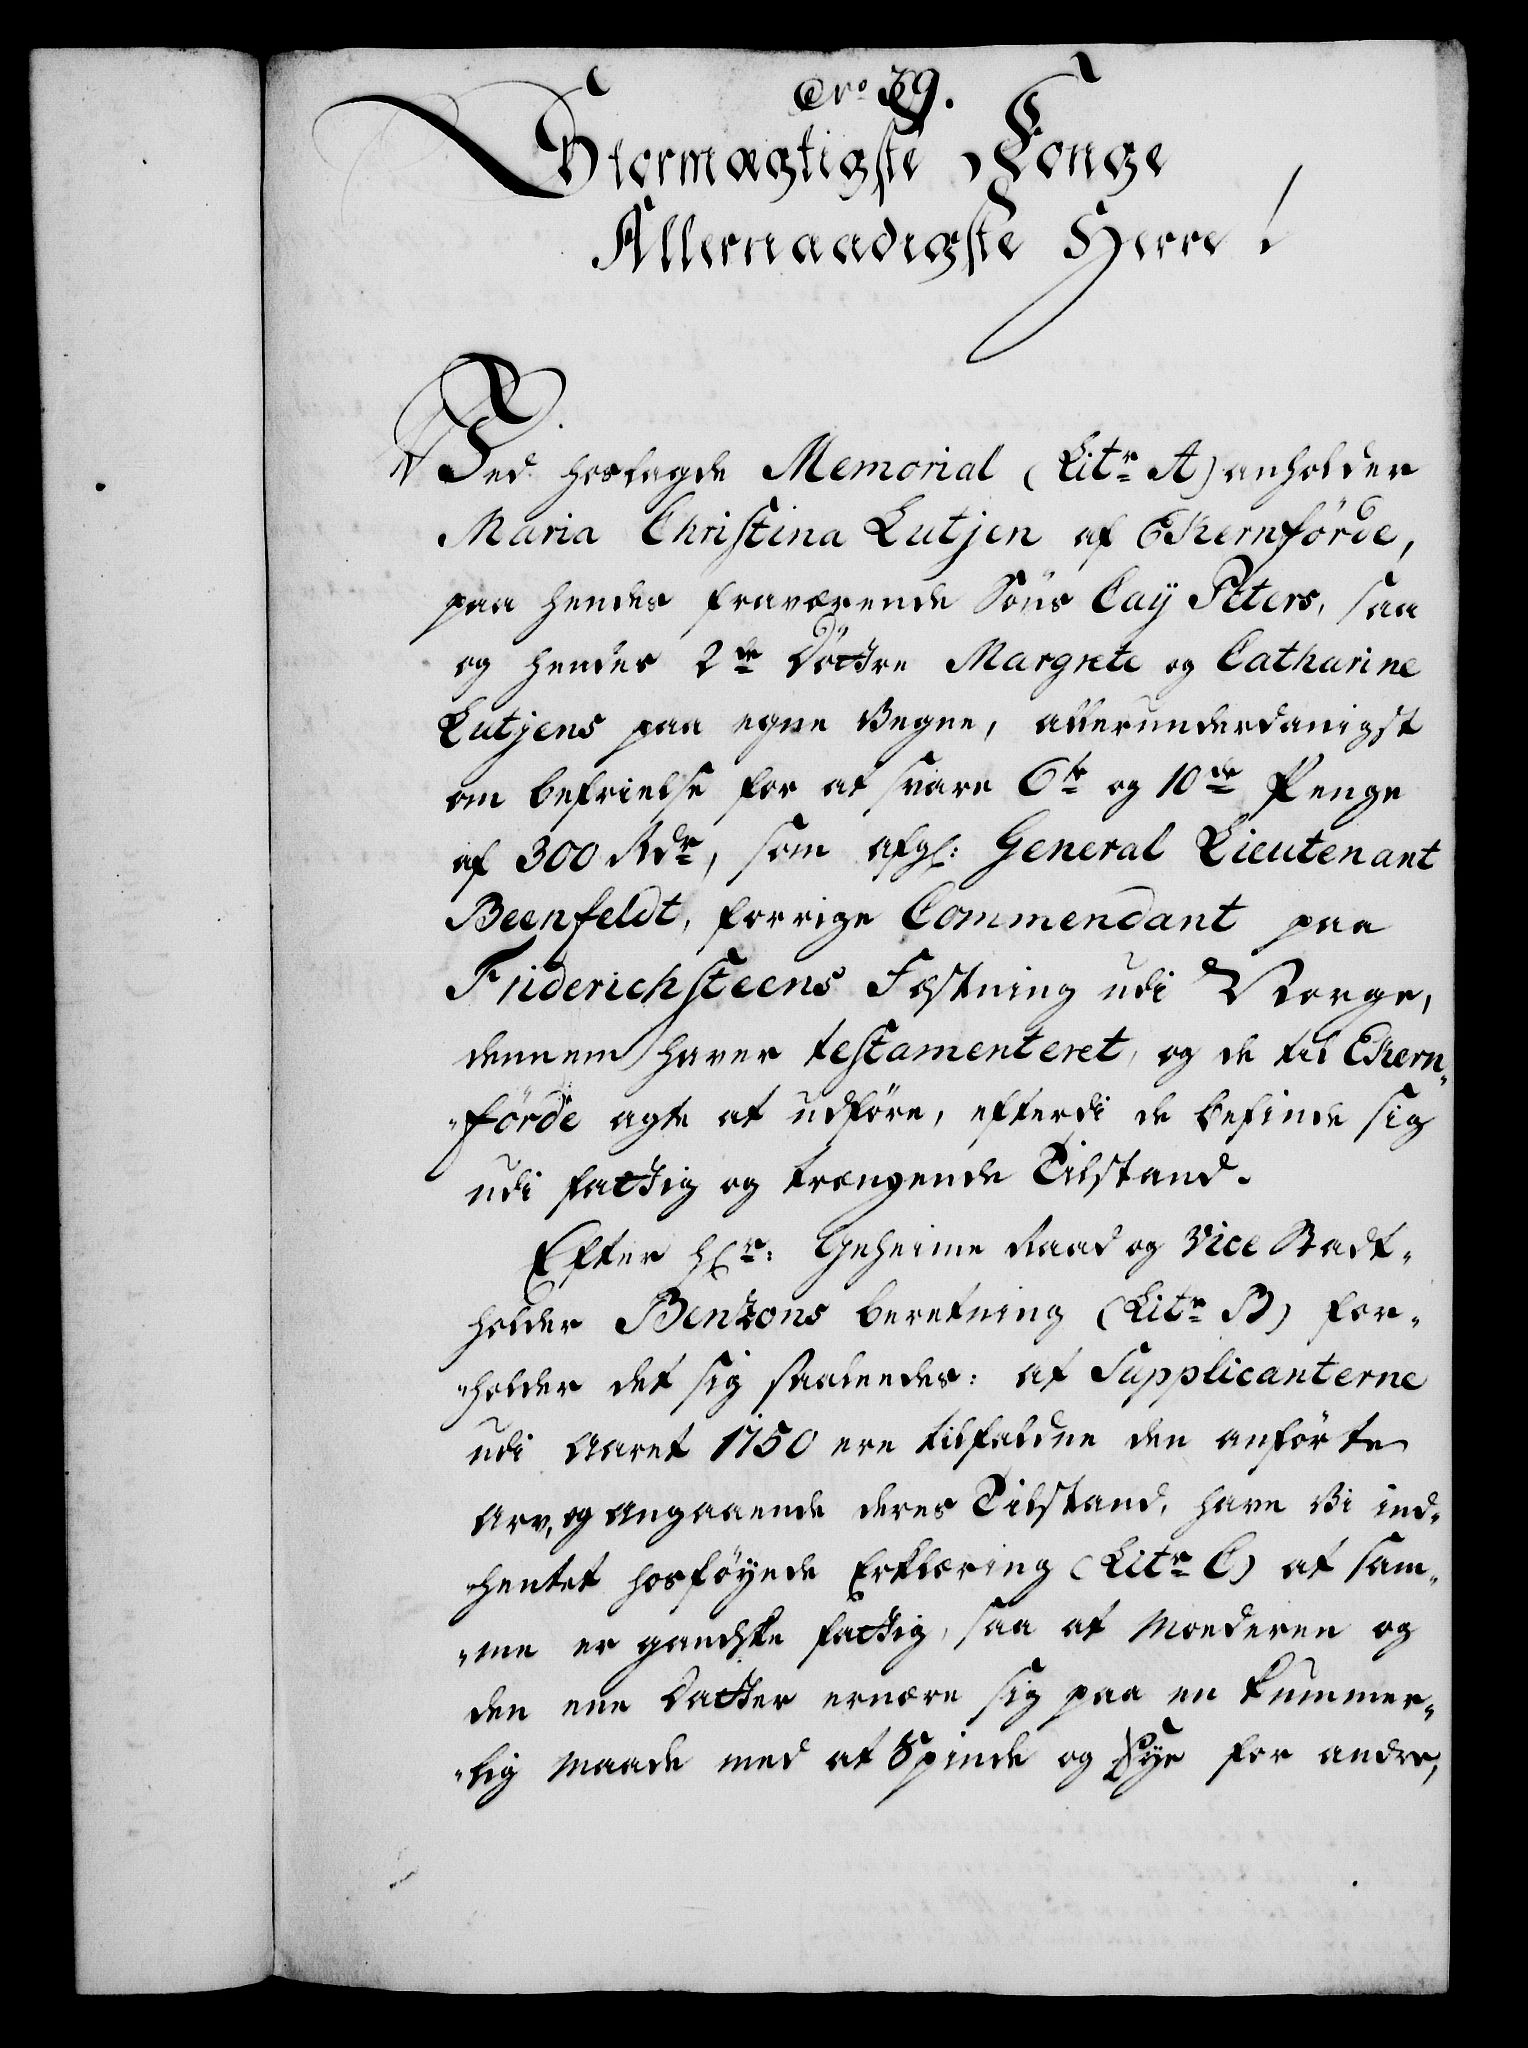 Nro 39.
Stormægtigste Konge
Allernaadigste Herre!
Ved hoslagde Memorial (Litr A) anholder
Maria Christina Lutjen af Ekernförde,
paa hendes fraværende Söns Cay Peters, saa
og hendes 2de Döttre Margrete og Catharine
Lutjens paa egne Vegne, allerunderdanigst
om befrielse for at svare 6te og 10de Penge
af 300 Rdr, som afg: General Lieutenant
Beenfeldt, forrige Commendant paa
Friderichsteens Fæstning udi Norge,
dennem haver testamenteret, og de til Ekern-
-förde agte at udföre, efterdi de befinde sig
udi fattig og trængende Tilstand.
Efter Hr: Geheime Raad og Vice Stadt-
holder Benzons beretning (Litr B) for-
-holder det sig saaledes: at Supplicanterne
udi Aaret 1750 ere tilfaldne den anförte
Arv, og angaaende deres Tilstand, have Vi ind-
-hentet hosföyede Erklæring (Litr C) at sam-
-me er gandske fattig, saa at Moderen og
den ene Datter ernære sig paa en kummer-
-lig Maade med at Spinde og Sye for andre,